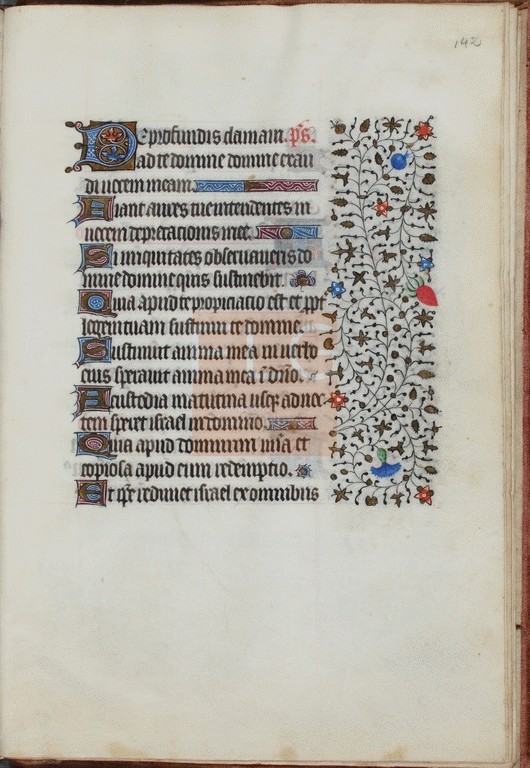 142
De profundis clamaui. p̃s.
ad te domine domine exau
di uocem meam.
Fiant aures tue intendentes in
uocem deprecationis mee.
Si iniquitates obseruaueris do
mine domine quis sustinebit.
Quia apud te propiciatio est et ꝓpt̾
legem tuam sustinui te domine.
Sustinuit anima mea in uerbo
eius sperauit anima mea ĩ dño.
A custodia matutina usqꝫ ad noc
tem speret israel in domino.
Quia apud dominum mĩa et
copiosa apud eum redemptio.
Et ip̃e redimet israel ex omnibus